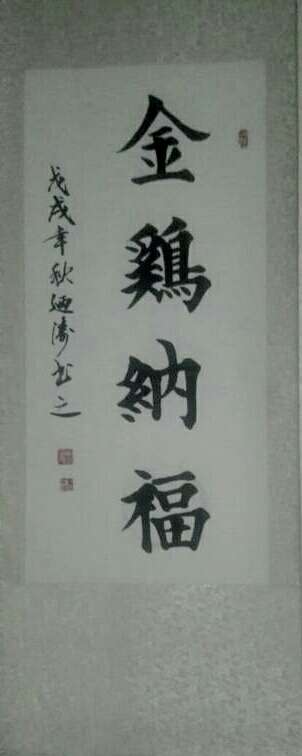 金鷄納福
戊戌年秋 書之